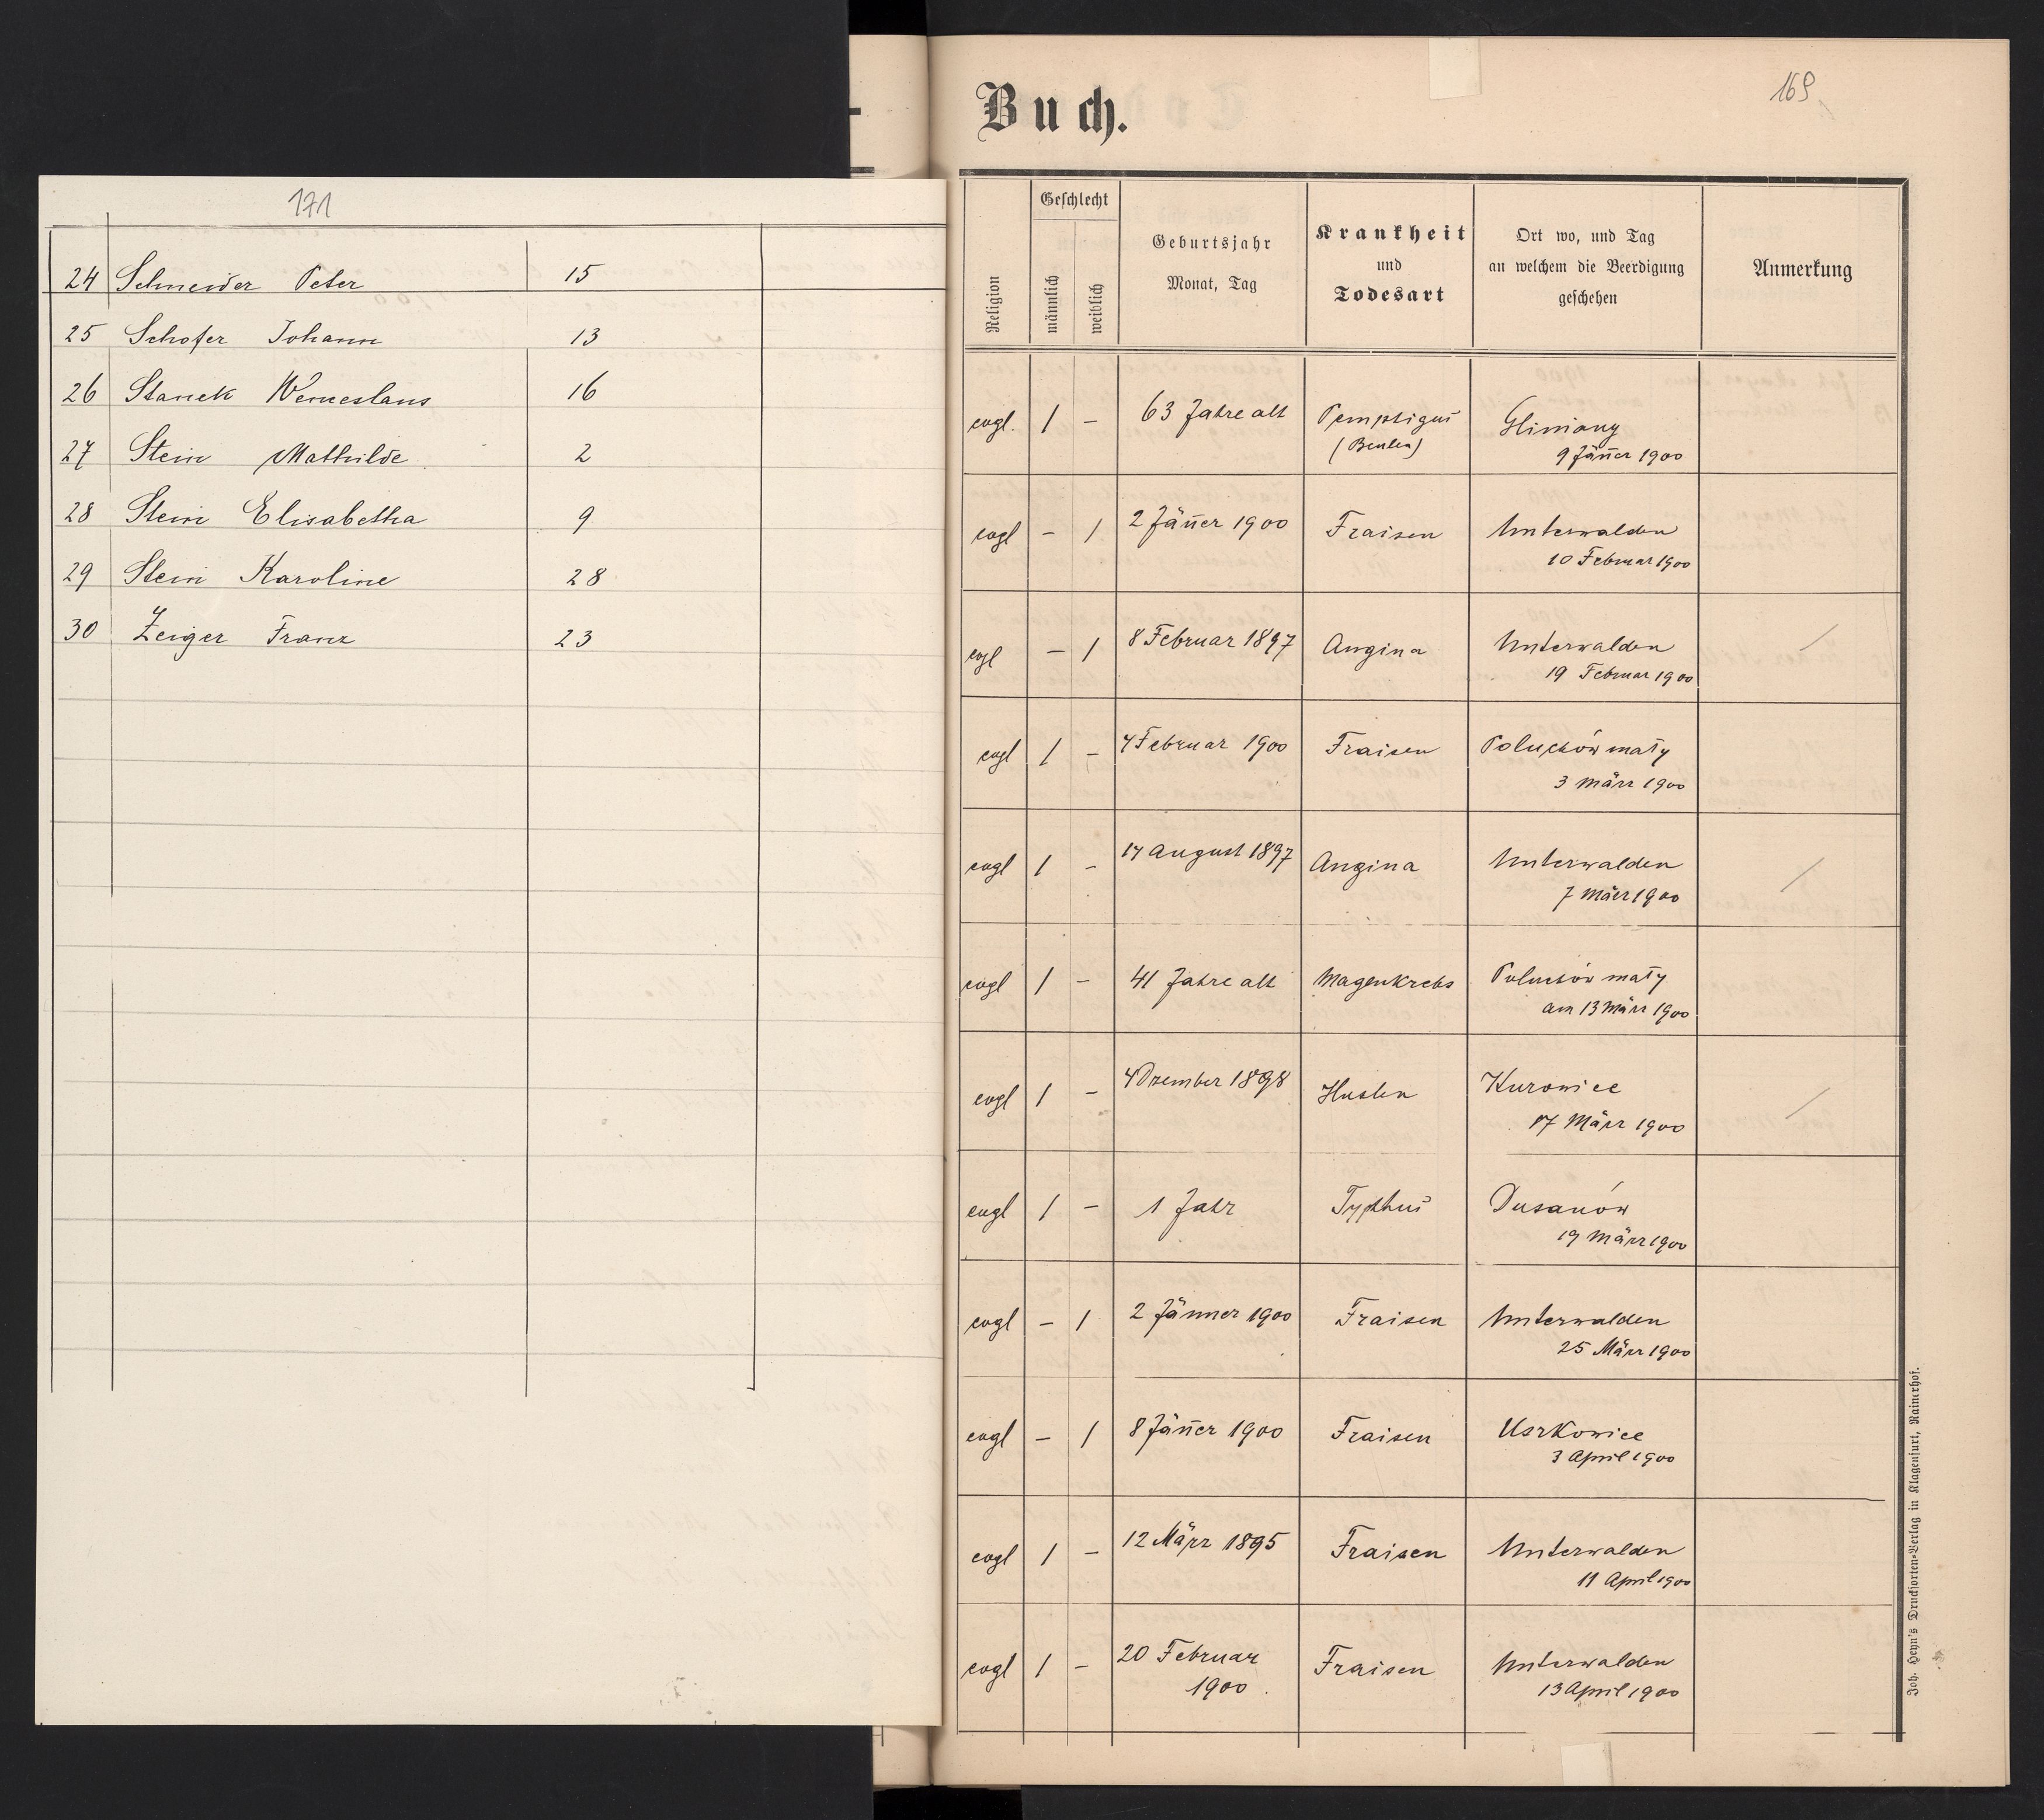 171
24 Schneider Peter 15
25 Schofer Johann 13
26 Stanek Wenceslaus 16
27 Stein Mathilde 2
28 Stein Elisabetha 9
29 Stein Karoline 28
30 Zeiger Franz 23
Buch.
169
Religion
Geschlecht
männlich
weiblich
Geburtsjahr
Monat, Tag
Krankheit
und
Todesart
Ort wo, und Tag
an welchem die Beerdigung
geschehen
Anmerkung
evgl. 1 – 63 Jahre alt Pemphigus Gliniany
(Beulen) 9 Jäner 1900
evgl – 1 2 Jäner 1900 Fraisen Unterwalden
10 Februar 1900
evgl – 1 8 Februar 1897 Angina Unterwalden
19 Februar 1900
evgl 1 – 4 Februar 1900 Fraisen Poluchów mały
3 März 1900
evgl 1 – 14 August 1897 Angina Unterwalden
7 März 1900
evgl 1 – 41 Jahre alt Magenkrebs Poluchów mały
am 13 März 1900
evgl 1 – 4 Dezember 1898 Husten Kurowice
17 März 1900
evgl 1 – 1 Jahr Typhus Dusanów
19 März 1900
evgl – 1 2 Jänner 1900 Fraisen Unterwalden
25 März 1900
evgl – 1 8 Jäner 1900 Fraisen Uszkowice
3 April 1900
evgl 1 – 12 März 1895 Fraisen Unterwalden
11 April 1900
evgl 1 – 20 Februar Fraisen Unterwalden
1900. 13 April 1900
Joh. Heyn's Drucksorten-Verlag in Klagenfurt, Rainerhof.